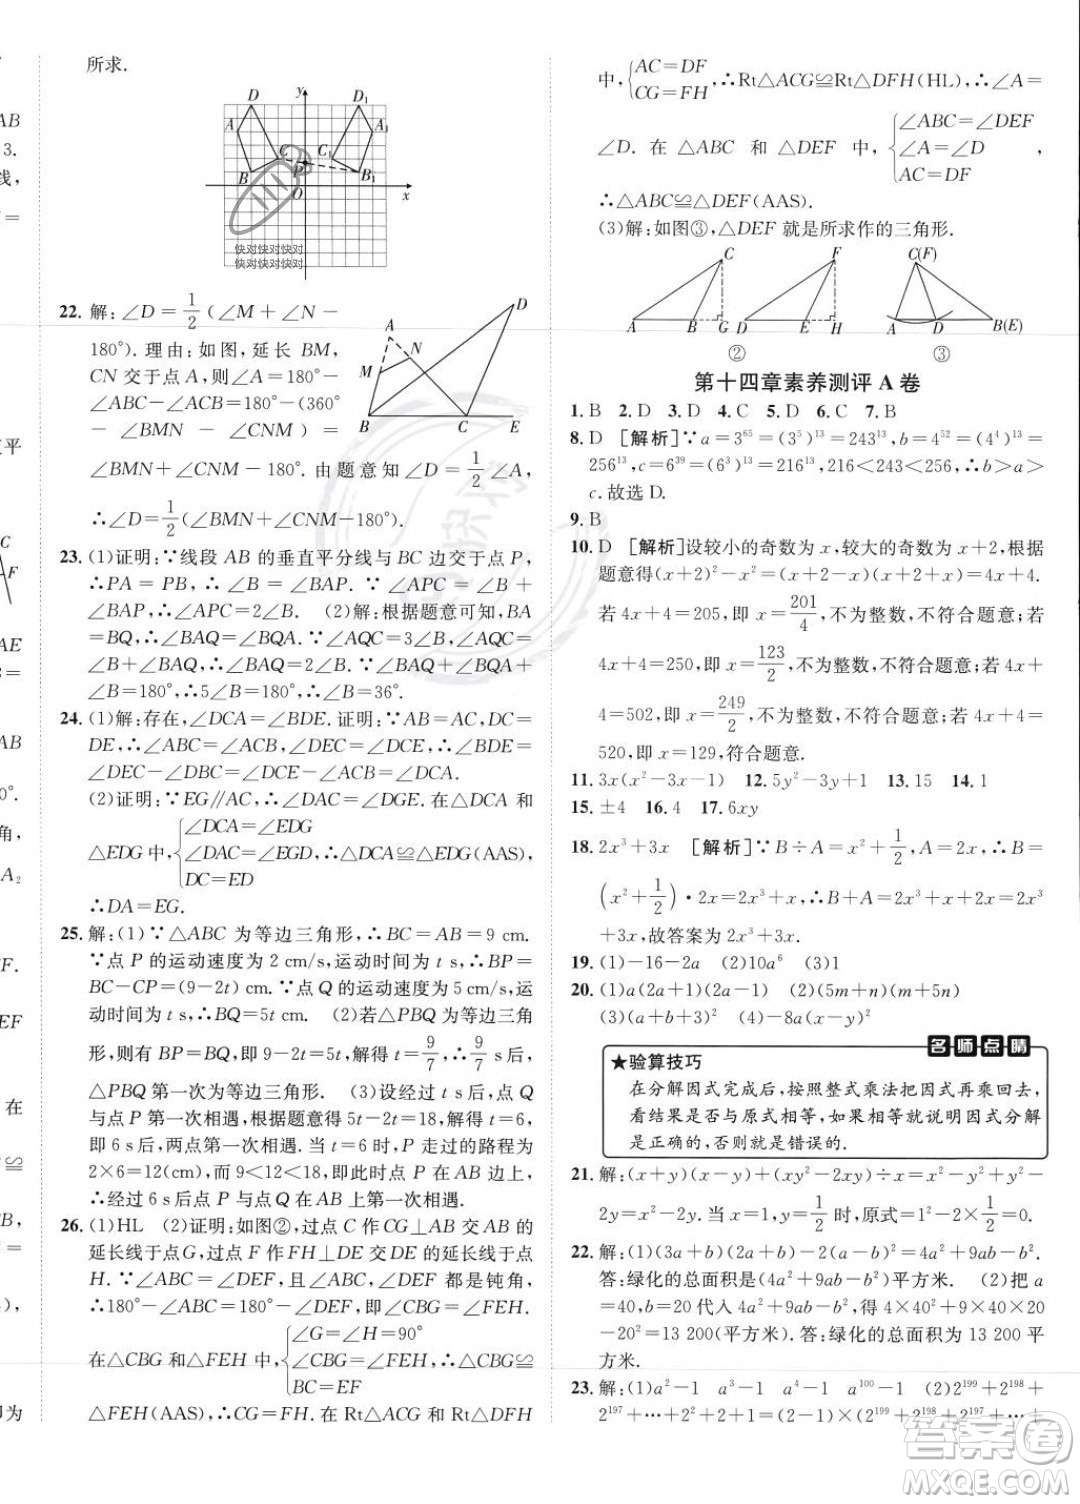 所求.
D D₁ A A₁ C C₁ P B B₁ O x y
快对快对快对
快对快对快对
22. 解:∠D=1/2(∠M+∠N-
180°).理由:如图,延长 BM,
CN 交于点 A,则∠A=180°-
∠ABC-∠ACB=180°-(360°
-∠BMN-∠CNM)=
∠BMN+∠CNM-180°.由题意知∠D=1/2∠A,
∴∠D=1/2(∠BMN+∠CNM-180°).
A D M N B C E
23. (1)证明:∵线段 AB 的垂直平分线与 BC 边交于点 P,
∴PA=PB,∴∠B=∠BAP,∵∠APC=∠B+
∠BAP,∴∠APC=2∠B. (2)解:根据题意可知,BA
=BQ,∴∠BAQ=∠BQA.∵∠AQC=3∠B,∠AQC=
∠B+∠BAQ,∴∠BQA=2∠B.∵∠BAQ+∠BQA+
∠B=180°,∴5∠B=180°,∴∠B=36°.
24. (1)解:存在,∠DCA=∠BDE.证明:∵AB=AC,DC=
DE,∴∠ABC=∠ACB,∠DEC=∠DCE,∴∠BDE=
∠DEC-∠ABC=∠DCE-∠ACB=∠DCA.
(2)证明:∵EG∥AC,∴∠DAC=∠DGE.在△DCA 和
△EDG 中,{∠DCA=∠EDG
∠DAC=∠EGD,∴△DCA≌△EDG(AAS),
DC=ED
∴DA=EG.
25. 解:(1)∵△ABC 为等边三角形,∴BC=AB=9 cm.
∵点 P 的运动速度为 2 cm/s,运动时间为 t s,∴BP=
BC-CP=(9-2t)cm.∵点 Q 的运动速度为 5 cm/s,运
动时间为 t s,∴BQ=5t cm. (2)若△PBQ 为等边三角
形,则有 BP=BQ,即 9-2t=5t,解得 t=9/7,∴9/7 s后,
△PBQ 第一次为等边三角形. (3)设经过 t s,点 Q 与
点 P 第一次相遇,根据题意得5t-2t=18,解得 t=6,
即 6 s时,两点第一次相遇.当 t=6时,P 走过的路程为
2×6=12(cm),而 9<12<18,即此时点 P 在 AB 边上,
∴经过 6 s后点 P 与点 Q 在 AB 上第一次相遇.
26. (1)HL (2)证明:如图②,过点 C 作 CG⊥AB 交 AB 的
延长线于点G,过点 F 作 FH⊥DE 交 DE 的延长线于点
H.∵∠ABC=∠DEF,∠ABC,∠DEF 都是钝角,
∴180°-∠ABC=180°-∠DEF,即∠CBG=∠FEH.
在△CBG 和△FEH 中,{∠G=∠H=90°
∠CBG=∠FEH,∴△CBG≌
BC=EF
△FEH(AAS),∴CG=FH.在 Rt△ACG 和Rt△DFH
中,{AC=DF
CG=FH,∴Rt△ACG≌Rt△DFH(HL),∴∠A=
∠D.在 △ABC 和 △DEF 中,{∠ABC=∠DEF
∠A=∠D,
AC=DF
∴△ABC≌△DEF(AAS).
(3)解:如图③,△DEF 就是所求作的三角形.
C F C(F)
A B G D E H A D B(E)
② ③
第十四章素养测评 A 卷
1. B 2. D 3. D 4. C 5. D 6. C 7. B
8. D [解析]∵a=3⁶⁵=(3⁵)¹³=243¹³,b=4⁵²=(4⁴)¹³=
256¹³,c=6³⁹=(6³)¹³=216¹³,216<243<256,∴b>a>
c.故选 D.
9. B
10. D [解析]设较小的奇数为 x,较大的奇数为 x+2,根据
题意得(x+2)²-x²=(x+2-x)(x+2+x)=4x+4.
若 4x+4=205,即 x=201/4,不为整数,不符合题意;若
4x+4=250,即 x=123/2,不为整数,不符合题意;若 4x+
4=502,即 x=249/2,不为整数,不符合题意;若 4x+4=
520,即 x=129,符合题意.
11. 3x(x²-3x-1) 12. 5y²-3y+1 13. 15 14. 1
15. ±4 16. 4 17. 6xy
18. 2x³+3x [解析]∵B÷A=x²+1/2,A=2x,∴B=
(x²+1/2)·2x=2x³+x,∴B+A=2x³+x+2x=2x³
+3x,故答案为 2x³+3x.
19. (1)-16-2a (2)10a⁶ (3)1
20. (1)a(2a+1)(2a-1) (2)(5m+n)(m+5n)
(3)(x+a+3)² (4)-8a(x-y)²
名师点睛
★验算技巧
在分解因式完成后,按照整式乘法把因式再乘回去,
看结果是否与原式相等,如果相等就说明因式分解
是正确的,否则就是错误的.
21. 解:(x+y)(x-y)+(xy²-2xy)÷x=x²-y²+y²-
2y=x²-2y.当 x=1,y=1/2时,原式=1²-2×1/2=0.
22. 解:(1)(3a+b)(2a-b)-(a-b)²·2=4a²+9ab-b².
答:绿化的总面积是(4a²+9ab-b²)平方米. (2)把 a
=40,b=20 代入 4a²+9ab-b²,得 4×40²+9×40×20
-20²=13 200(平方米).答:绿化的总面积为 13 200 平
方米.
23. 解:(1)a²-1 a³-1 a⁴-1 a¹⁰⁰-1 (2)2¹⁹⁹+2¹⁹⁸+
2¹⁹⁷+…+2+1=(2-1)×(2¹⁹⁹+2¹⁹⁸+2¹⁹⁷+…+
答案圈
MXQE.COM